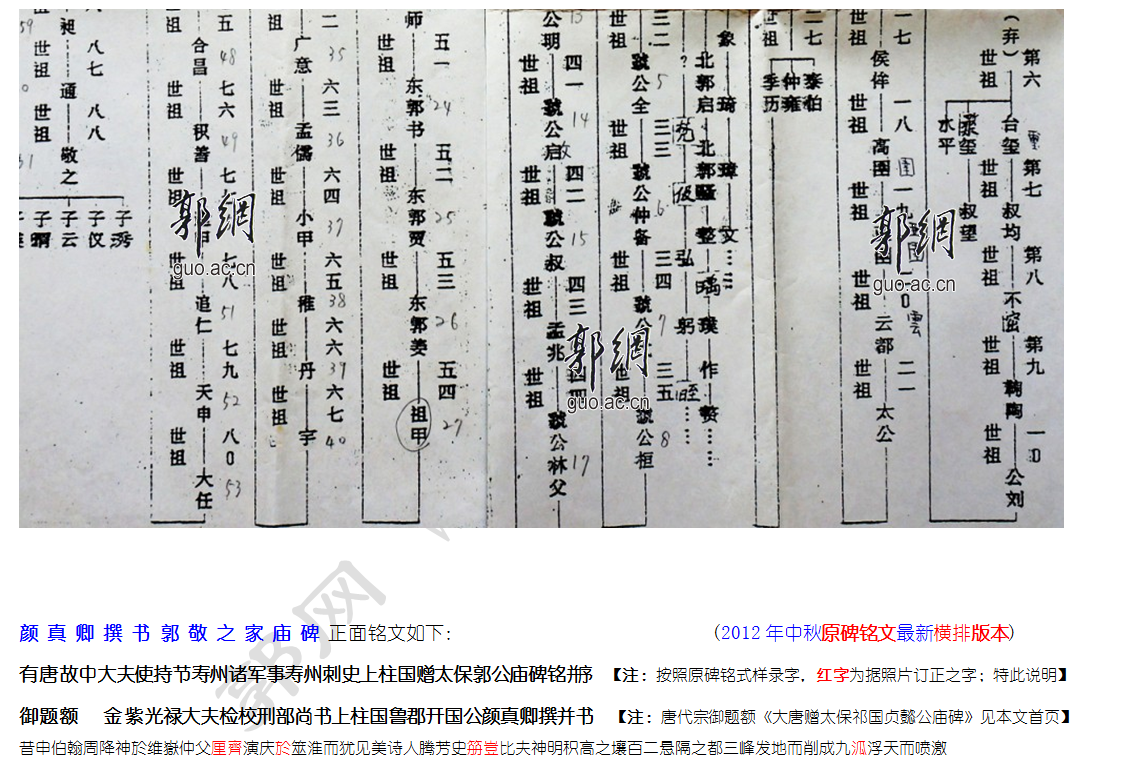 第六 第七 第八 第九 一〇
(弃) 世祖 台玺 世祖 叔均 世祖 不窋 世祖 鞠陶 世祖 公刘
叔望
水平
一七 一八 一九 二一
世祖 侯侔 世祖 高圉 世祖 世祖 云都 世祖 太公
圉 雲
二七
世祖
泰伯
仲雍
季历
象 琦 璋 文……
北郭启 北郭骚 整 瑀 璞 作 赞……
? 尭 仮 弘 躬 ……
三二 三三 三四 三五
世祖 虢公全 世祖 虢公仲备 世祖 虢公 世祖 虢公柜
5 6 7 8
四一 四二 四三 四四
公明 世祖 虢公启 世祖 虢公叔 世祖 孟兆 世祖 虢公林父
13 14 15 17
五一 五二 五三 五四
师 世祖 东郭书 世祖 东郭贾 世祖 东郭姜 世祖 祖甲
24 25 26 27
二 六三 六四 六五 六六 六七
世祖 广意 世祖 孟儒 世祖 小甲 世祖 稚 世祖 丹 世祖 宇
35 36 37 38 39 40
五 七六 七 七八 七九 八〇
世祖 合昌 世祖 积善 世祖 甲 世祖 追仁 世祖 天申 世祖 大任
48 49 51 52 53
八七 八八
昶 世祖 通 世祖 敬之
子琇
子仪
子云
郭網
guo.ac.cn
郭網
guo.ac.cn
郭網
guo.ac.cn
郭网
颜 真 卿 撰 书 郭 敬 之 家 庙 碑 正面铭文如下: (2012 年中秋原碑铭文最新横排版本)
有唐故中大夫使持节寿州诸军事寿州刺史上柱国赠太保郭公庙碑铭并序 【注：按照原碑铭式样录字，红字为据照片订正之字；特此说明】
御题额 金紫光禄大夫检校刑部尚书上柱国鲁郡开国公颜真卿撰并书 【注：唐代宗御题额《大唐赠太保祁国贞懿公庙碑》见本文首页】
昔申伯翰周降神於维嶽仲父匡齊演庆於筮淮而犹见美诗人腾芳史笧豈比夫神明积高之壤百二悬隔之都三峰发地而削成九泒浮天而喷激